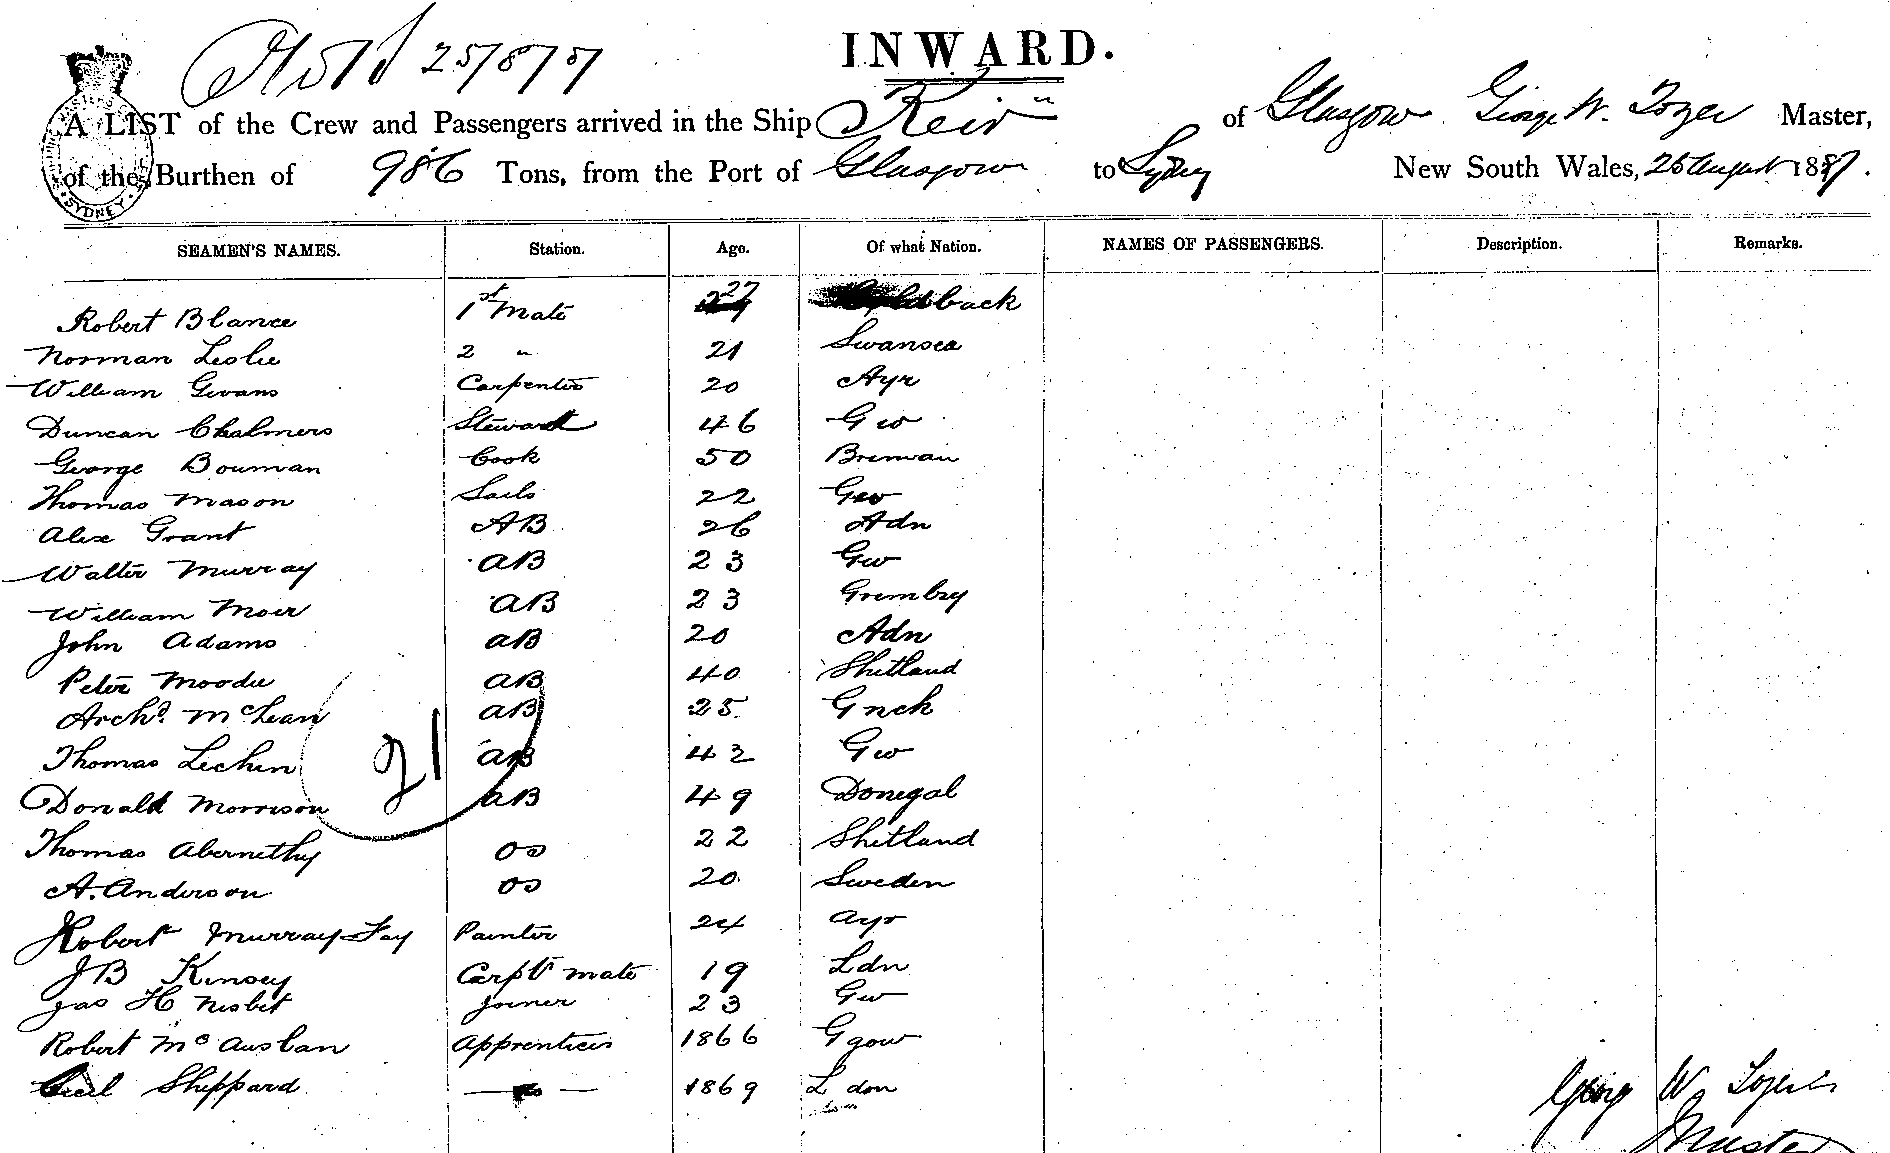 25/8/87
INWARD.
A LIST of the Crew and Passengers arrived in the Ship "Keir" of Glasgow George W. Tozer Master,
of the Burthen of 986 Tons, from the Port of Glasgow to Sydney New South Wales, 25 August 1887.
SYDNEY
SEAMEN'S NAMES. Station. Age. Of what Nation. NAMES OF PASSENGERS. Description. Remarks.
Robert Blance 1st Mate 27
Norman Leslie 2 " 21 Swansea
William Givans Carpenter 20 Ayr
Duncan Chalmers Steward 46 Gw
George Bouman Cook 50 Breman
Thomas Mason Sails 22 Gw
Alex Grant AB 26 Adn
Walter Murray AB 23 Gw
William Moir AB 23 Grimbsy
John Adams AB 20 Adn
Peter Moodie AB 40 Shetland
Archd. McLean AB 25 Gnck
Thomas Lechin AB 42 Gw
21
Donald Morrison AB 49 Donegal
Thomas Abernethy OS 22 Shetland
A. Anderson OS 20 Sweden
Robert Murray Fay Painter 24 Ayr
JB Kinsey Carptr mate 19 Ldn
Jas H Nisbet Joiner 23 Gw
Robert McAuslan Apprentices 1866 Ggow
Cecil Sheppard 1869 Ldon
George W. Tozer
Master